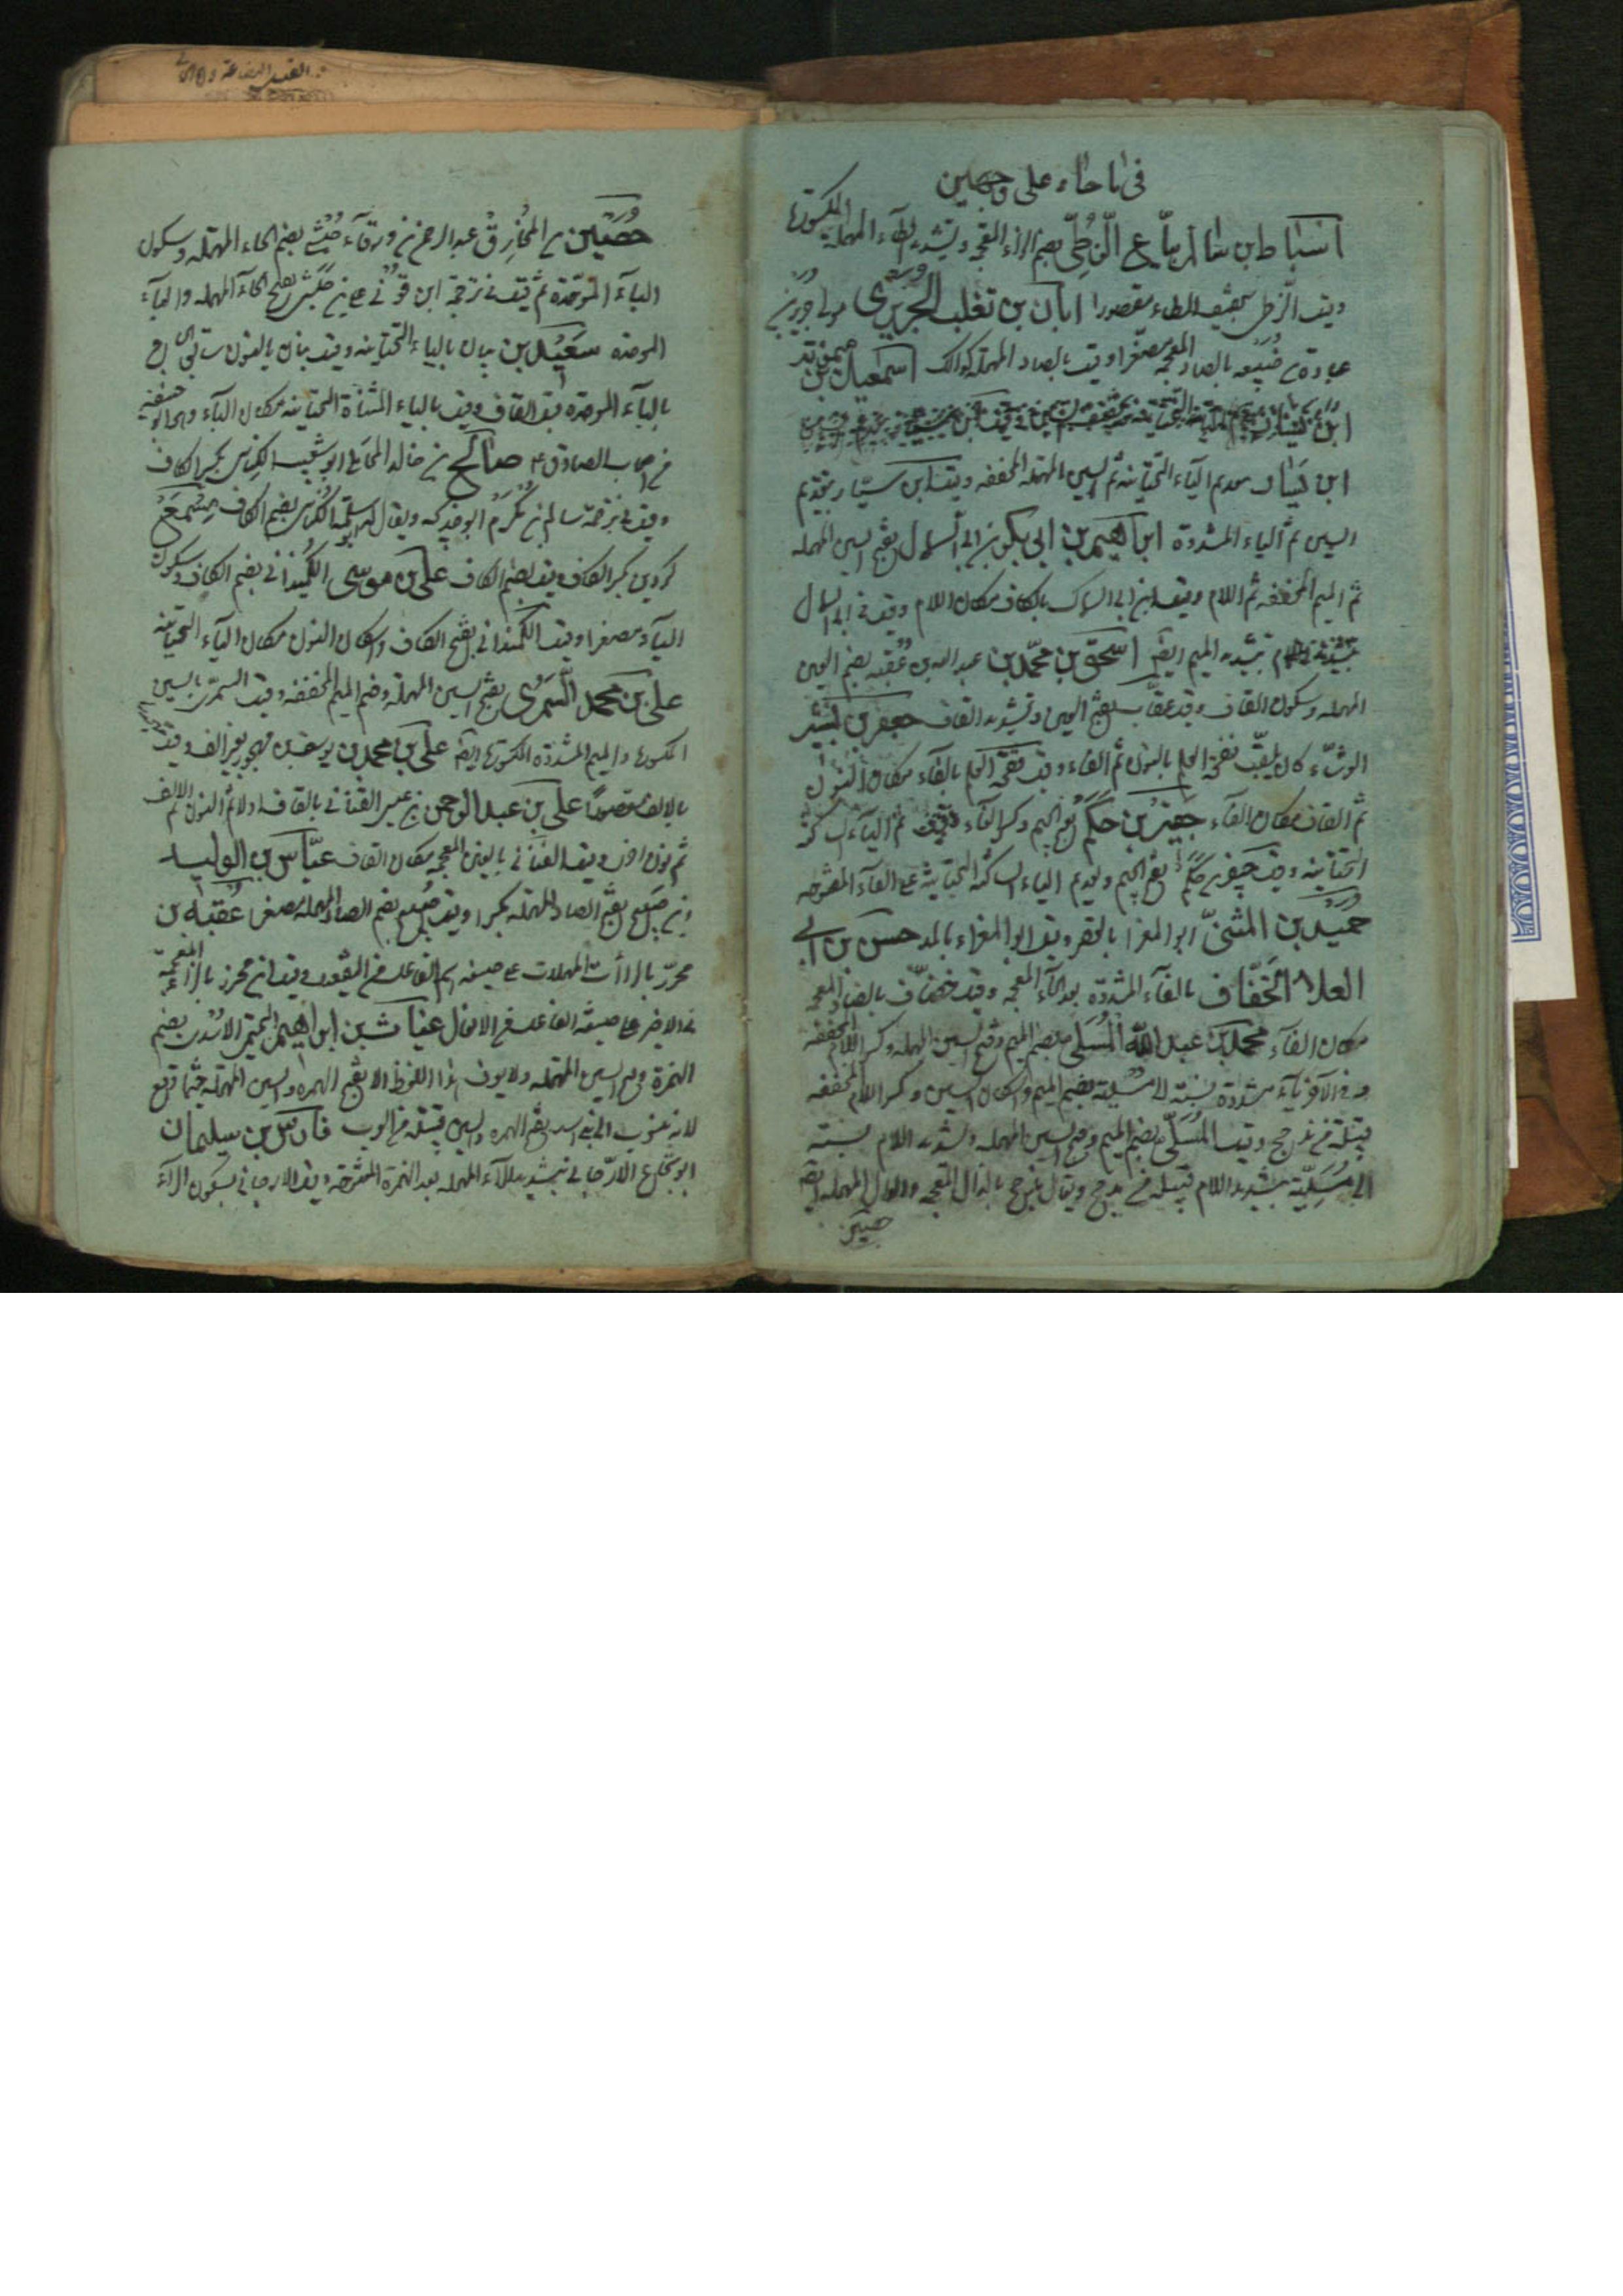 في ما جاء على وجهين
اسباط بن سالم بياع الزطي بضم الزاء المعجمة وتشديد الطاء المهملة المكسورة
وقيل الزطى بتخفيف الطاء مقصورا ابان بن تغلب الجريري مولى جرير بن
عبادة بن ضبيعه بالضاد المعجمة مصغرا وقيل بالصاد المهملة كذلك اسمعيل بن
ابن يسار بتقديم الياء التحتانية ثم السين المهملة المخففة وقيل ابن سيار بتقديم
السين ثم الياء المشددة ابراهيم بن ابي بكر بن ابي السمال بفتح السين المهملة
ثم الميم المخففة ثم اللام وقيل ابن ابي السماك بالكاف مكان اللام وقيل في ابي السمال
بتشديد الميم ايضا اسحق بن محمد بن عبد الله بن عقبه بضم العين
المهملة وسكون القاف وقيل عقاب بفتح العين وتشديد القاف جعفر بن بشير
الوشاء كان يلقب نفحة العلم بالنون ثم الفاء وقيل فقحة العلم بالفاء مكان النون
ثم القاف مكان الفاء جفير بن حكم بفتح الجيم وكسر الفاء ثم الياء الساكنة
التحتانية وقيل جيفر بن حكم بفتح الجيم وتقديم الياء الساكنة التحتانية على الفاء المفتوحة
حميد بن المثنى ابو المغرا بالقصر وقيل ابو المغراء بالمد حسن بن ابي
العلاء الخفاف بالفاء المشددة بعد الخاء المعجمة وقيل خصاف بالصاد
مكان الفاء محمد بن عبد الله المسلي بضم الميم وفتح السين المهملة وكسر اللام المخففة
وفي الآخر ياء مشددة نسبة الى مسلية بضم الميم واسكان السين وكسر اللام المخففة
قبيلة من مذحج وقيل المسلي بضم الميم وفتح السين المهملة وتشديد اللام نسبة
الى مسلية بتشديد اللام قبيلة من مذحج ويقال مذحج بالذال المعجمة والدال المهملة ايضا
حصين
حصين بن المخارق بن عبد الرحمن بن ورقاء بن حبشي بضم الحاء المهملة وسكون
الباء الموحدة ثم قيل في ترجمة ابن حبشي بفتح الحاء المهملة والباء
الموحدة سعيد بن بيان بالياء التحتانية وقيل بنان بالنون سابق الحاج
بالباء الموحدة قبل القاف وقيل بالياء المثناة التحتانية مكان الباء وهو ابو حنيفة
من اصحاب الصادق ع صالح بن خالد المحاملي ابو شعيب الكناسي بكسر الكاف
وقيل في ترجمة سالم بن مكرم ابو خديجة ويقال ابو سلمة الكناسي بضم الكاف مسمع
كردين بكسر الكاف وقيل بضم الكاف علي بن موسى الكميذاني بضم الكاف وسكون
الياء مصغرا وقيل الكمنداني بفتح الكاف واسكان النون مكان الياء التحتانية
علي بن محمد السمري بفتح السين المهملة وضم الميم المخففة وقيل السمري بالسين
المكسورة والميم المشددة المكسورة ايضا علي بن محمد بن يوسف بن مهجور بغير الف وقيل
بالالف علي بن عبد الرحمن بن عيسى القناني بالقاف اولا ثم النون ثم الالف
ثم نون اخرى وقيل الغناني بالغين المعجمة مكان القاف عباس بن الوليد
بن صبيح بفتح الصاد المهملة مكبرا وقيل صبيح بضم الصاد المهملة مصغرا عقبة بن
محرر بالراءات المهملات على صيغة اسم الفاعل من التفعيل وقيل ابن محرز بالزاء المعجمة
في الاخير على صيغة الفاعل من الافعال غياث بن ابراهيم التميمي الاسدي بضم
الهمزة وفتح السين المهملة ولا يعرف هذا اللفظ الا بفتح الهمزة والسين المهملة حيثما وقع
لانه منسوب الى بني اسد بفتح الهمزة والسين قبيلة من العرب فارس بن سليمان
ابو شجاع الارجاني بتشديد الراء المهملة بعد الهمزة المفتوحة وقيل الارجاني بسكون الراء